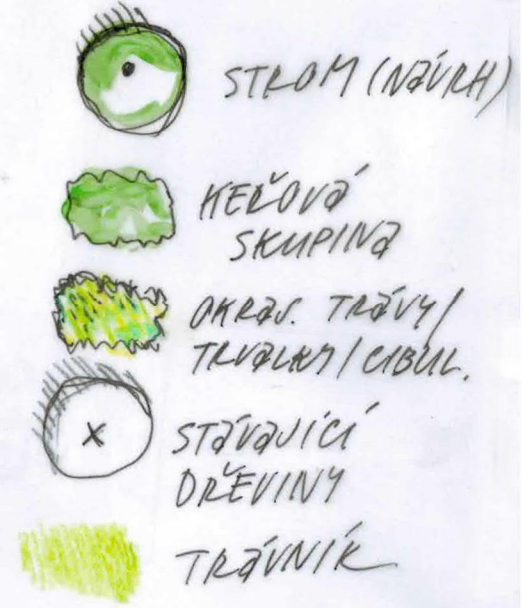 STROM (NÁVRH)
KEŘOVÁ
SKUPINA
OKRAS. TRÁVY/
TRVALKY/CIBUL.
STÁVAJÍCÍ
DŘEVINY
TRÁVNÍK